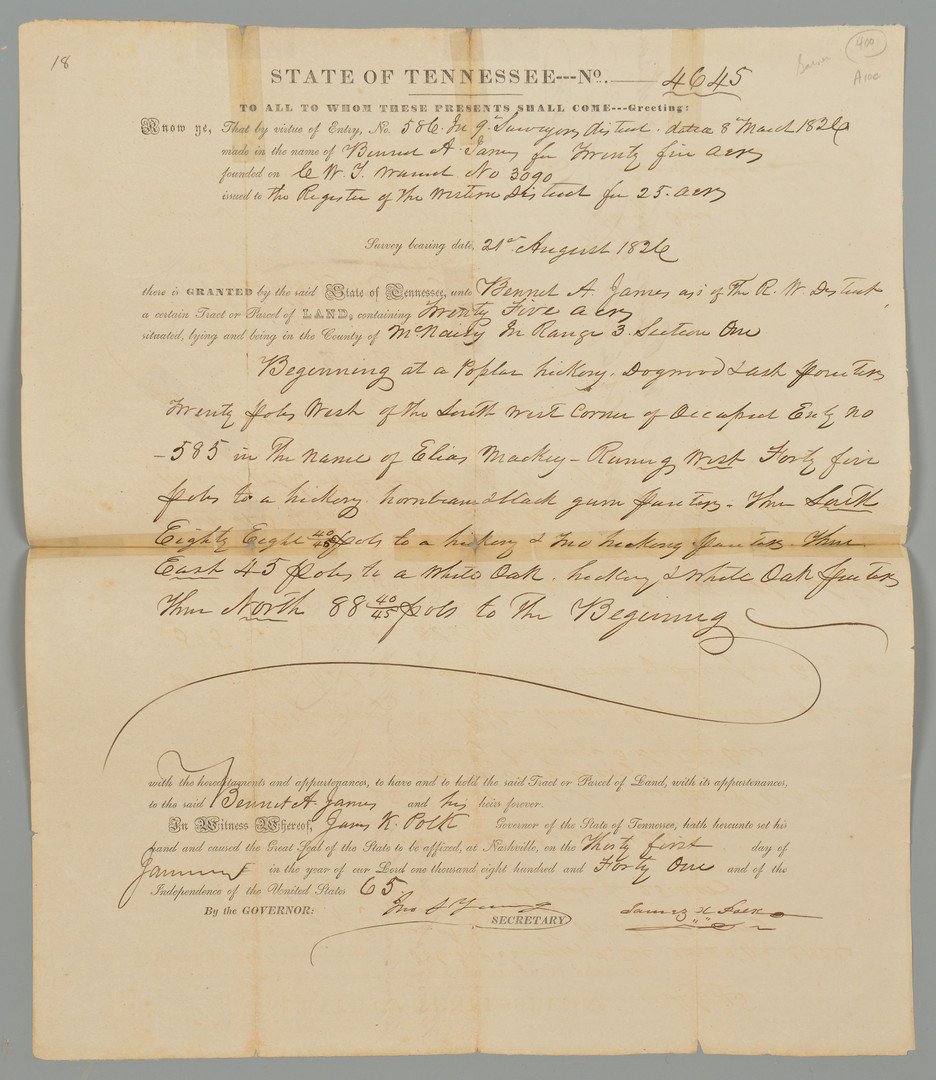 18
400
A100
STATE OF TENNESSEE---No. 4645
TO ALL TO WHOM THESE PRESENTS SHALL COME---Greeting:
Know ye, That by virtue of Entry, No. 586 In 9th Surveyors district dated 8th March 1826
made in the name of Bennet A. James for Twenty five acres
founded on C W. T. Warrant No 3090
issued to the Register of the Western District for 25 acres
Survey bearing date, 21st August 1826
there is GRANTED by the said State of Tennessee, unto Bennet A. James as's of The R. W. District
a certain Tract or Parcel of LAND, containing Twenty Five acres
situated, lying and being in the County of McNairy In Range 3 Section One
Beginning at a Poplar hickory, Dogwood & ash pointers
Twenty poles West of the South west corner of Occupant Entry no
-585 in The name of Elias Mackey - Runing West Forty five
poles to a hickory hornbeam & black gum pointers. Thence South
Eighty Eight 40/45 poles to a hickory & two hickory pointers Thence
East 45 poles to a White Oak. hickory & White Oak pointers
Thence North 88 40/45 poles to The Beginning
with the hereditaments and appurtenances, to have and to hold the said Tract or Parcel of Land, with its appurtenances,
to the said Bennet A James and his heirs forever.
In Witness Whereof, James K. Polk Governor of the State of Tennessee, hath hereunto set his
hand and caused the Great Seal of the State to be affixed, at Nashville, on the Thirty first day of
January in the year of our Lord one thousand eight hundred and Forty One and of the
Independence of the United States 65.
By the GOVERNOR: Jno S Young James K Polk
SECRETARY